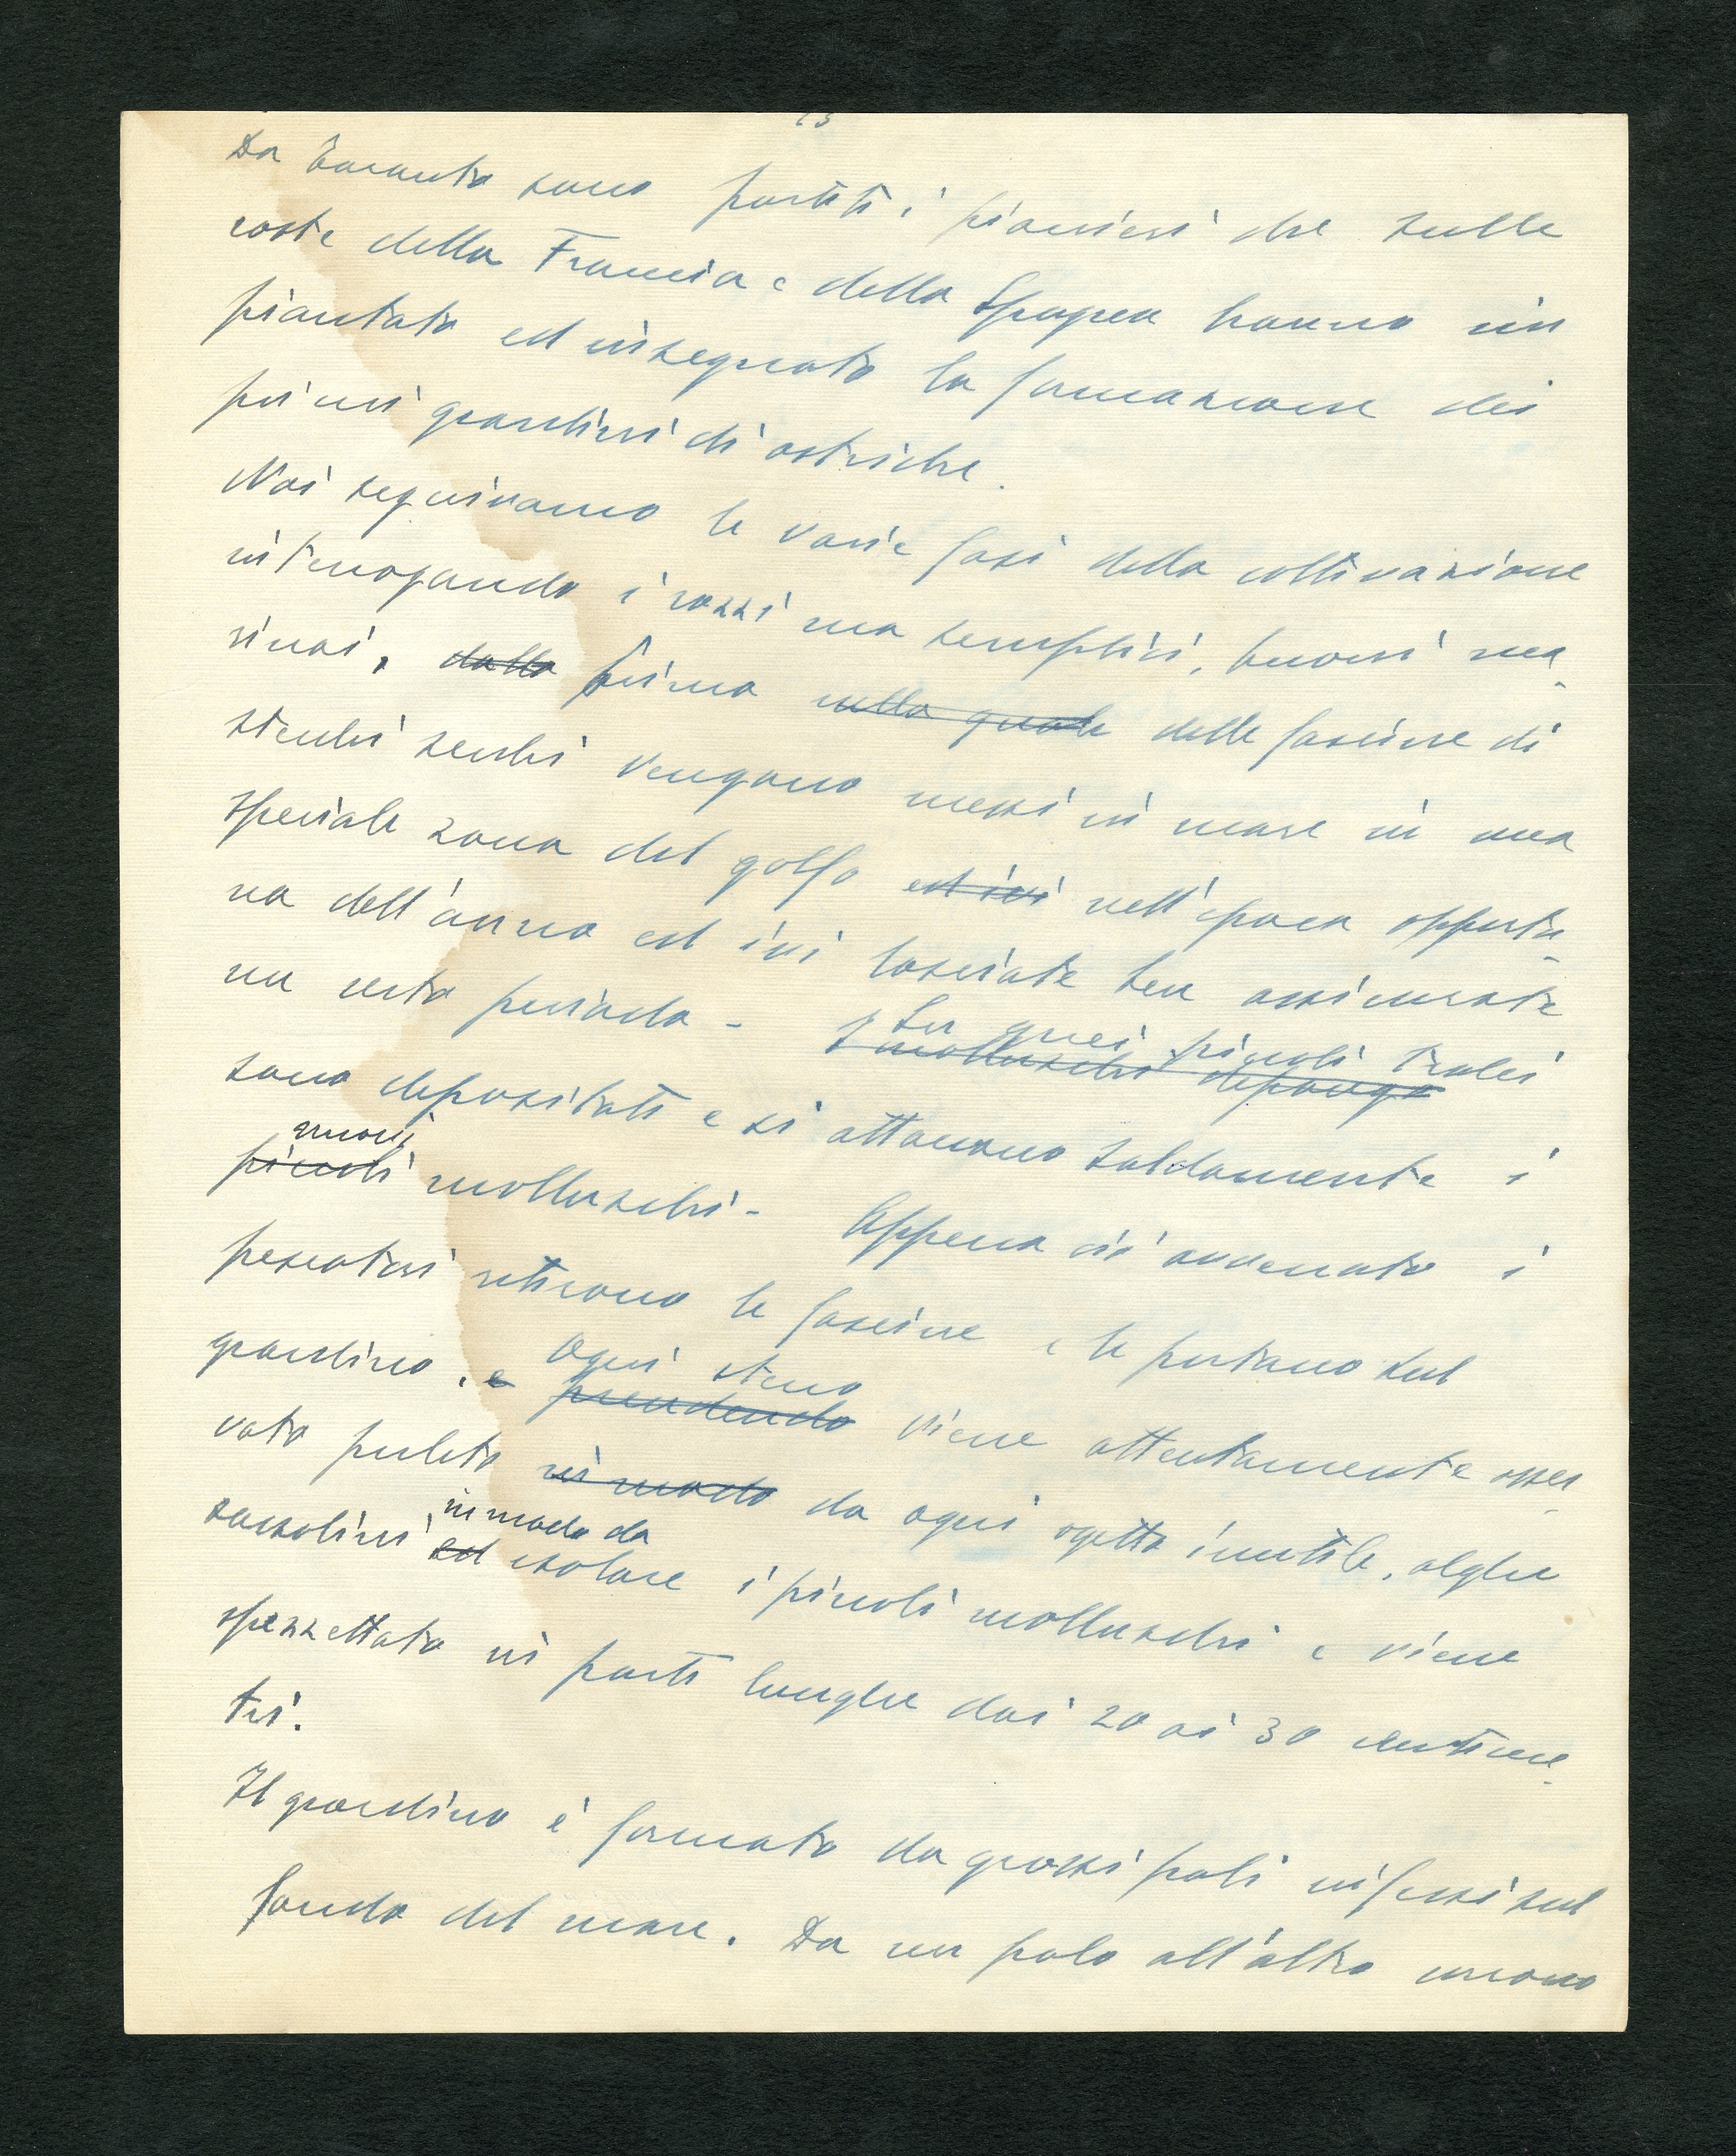 13
Da Taranto sono partiti i pionieri che sulle
coste della Francia e della Spagna hanno im
piantato ed insegnato la formazione dei
primi giardini di ostriche.
Noi seguivamo le varie fasi della coltivazione
interrogando i rozzi ma semplici, buoni ma-
rinai, dalla prima nella quale delle fascine di
stecchi secchi vengono messi in mare in una
speciale zona del golfo ed ivi nell'epoca opportu-
na dell'anno ed ivi lasciate ben assicurate
un certo periodo - Su quei piccoli tralci
I molluschi depongo
sono depositati e si attaccano saldamente i
nuovi
piccoli molluschi - Appena ciò avvenuto i
pescatori ritirano le fascine e le portano sul
giardino. e Ogni stecco
prendendo viene attentamente osser-
vato pulito in modo da ogni ogetto inutile, alghe
in modo da
sassolini, ed isolare i piccoli molluschi e viene
spezzettato in parti lunghe dai 20 ai 30 centime-
tri.
Il giardino è formato da grossi pali infissi sul
fondo del mare. Da un palo all'altro corrono